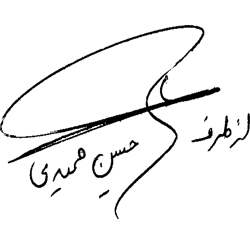 از طرف حسن حمیدی